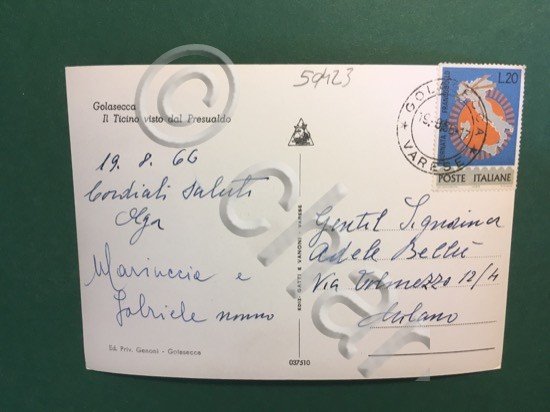 50423
Golasecca
Il Ticino visto dal Presualdo
L.20
POSTE ITALIANE
VARESE
19 . 8 . 66
Cordiali saluti
Olga
Mariuccia e
Gabriele nonno
Gentil Signorina
Adele Bellii
Via Tolmezzo 12/4
Milano
Ediz. GATTI E VANONI - VARESE
Ed. Priv. Genoni - Golasecca
037510
© clhar